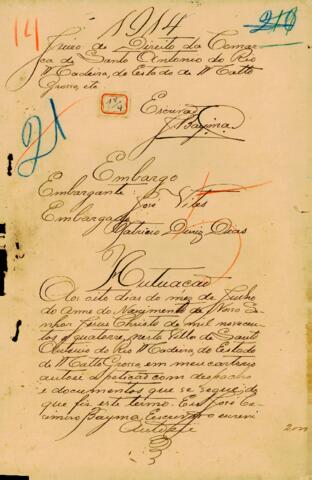 14
1914
210
Juizo de Direito da Comar-
ca de Santo Antonio do Rio
Madeira, do Estado de Matto
Grosso, etc
14/4
21
Escrivão
Bayma
Embargo
Embargante: José Vites
Embargado
Patricio Diniz Dias
Autuação
Aos oito dias do mez de Junho
do Anno do Nascimento de Nosso Se-
nhor Jesus Christo de mil novecen-
tos e quatorze, nesta Villa de Santo
Antonio do Rio Madeira, do Estado
de Matto Grosso, em meu cartorio
autuei a petição com despacho
e documentos que se segue; do
que fiz este termo. Eu, José Ca-
simiro Bayma, Escrivão escrevi
Autuei